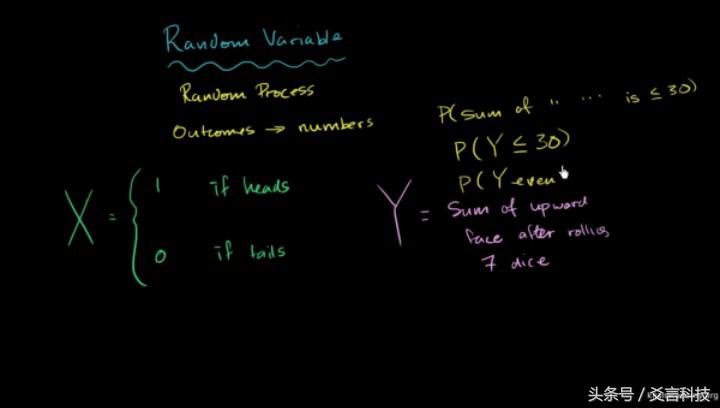 Random Variable
Random Process
Outcomes → numbers
X = { 1 if heads
0 if tails
P(sum of " ... is ≤ 30)
P(Y ≤ 30)
P(Y even
Y = Sum of upward
face after rolling
7 dice
头条号 / 爻言科技